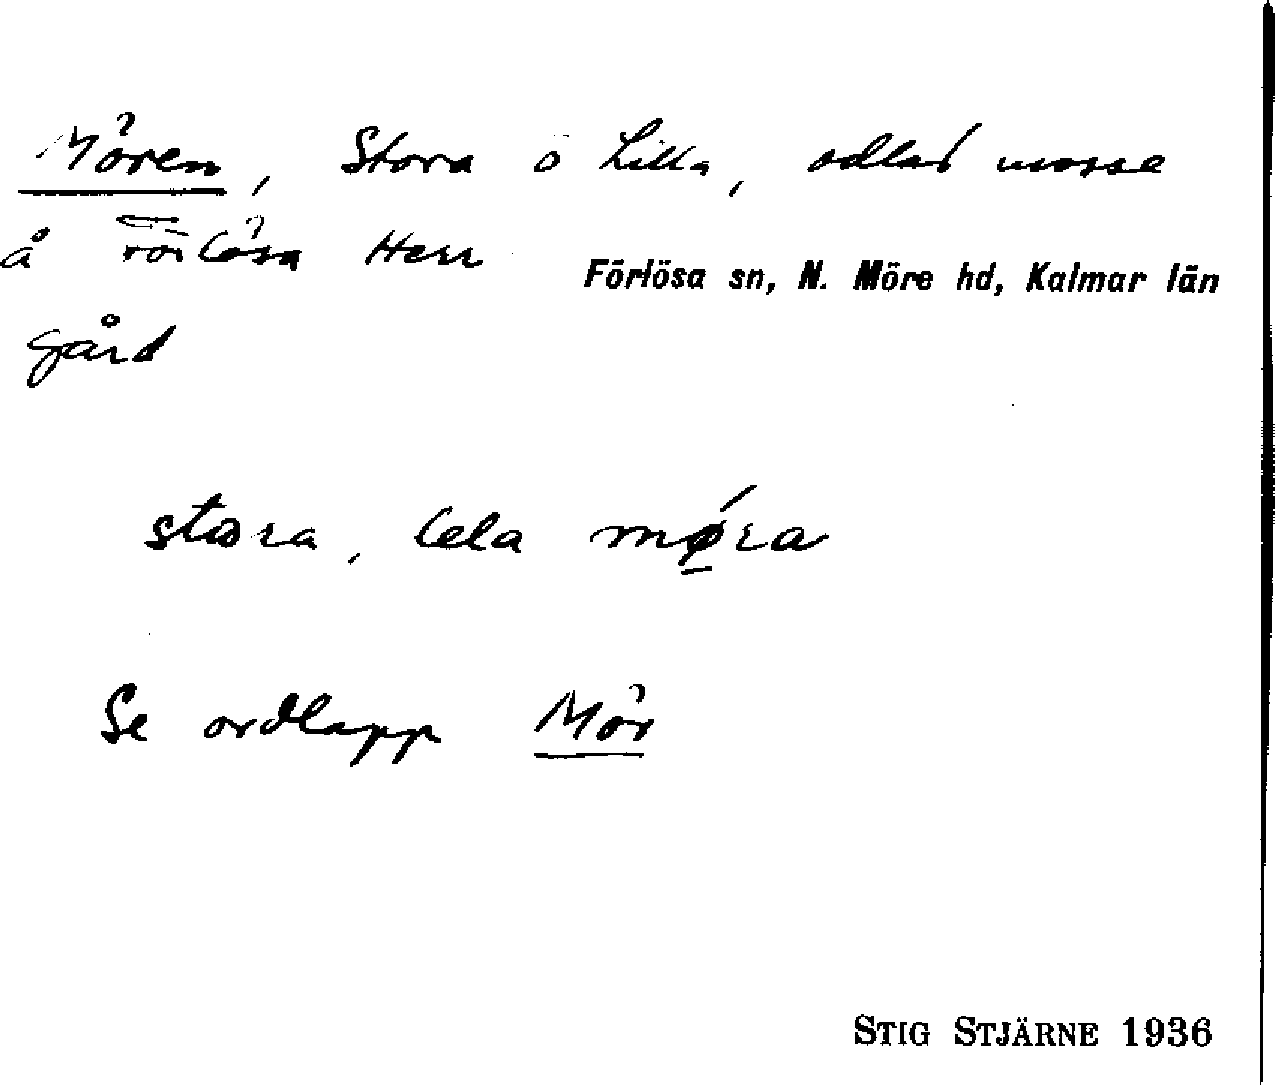 Mören, Stora o Lilla, odlad mosse
å Förlösa Herr
Förlösa sn, N. Möre hd, Kalmar län
gård
stora, lela møra
Se ordlapp Mör
STIG STJÄRNE 1936